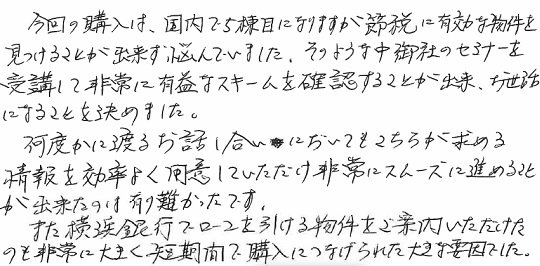 今回の購入は、国内で5棟目になりますが節税に有効な物件を
見つけることが出来ず悩んでいました。そのような中御社のセミナーを
受講して非常に有益なスキームを確認することが出来、お世話
になることを決めました。
何度かに渡るお話し合いにおいてもこちらが求める
情報を効率よく用意していただけ非常にスムーズに進めること
が出来たのは有り難かったです。
また横浜銀行でローンを引ける物件をご案内いただけた
のも非常に大きく短期間で購入につなげられた大きな要因でした。